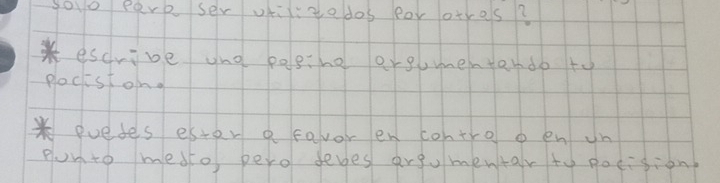 solo para ser utilizados por otros?
* escribe una pagina argumentando tu
pocision.
* puedes estar a favor en contra o en un
punto medio, pero debes argumentar tu pocision.